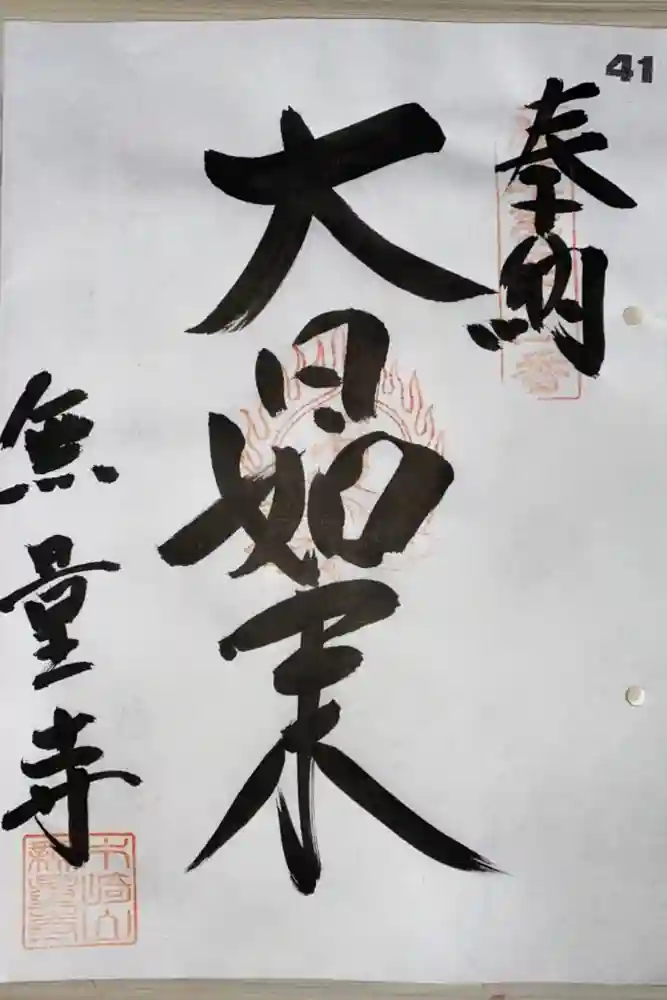 41
奉納
大日如来
無量寺